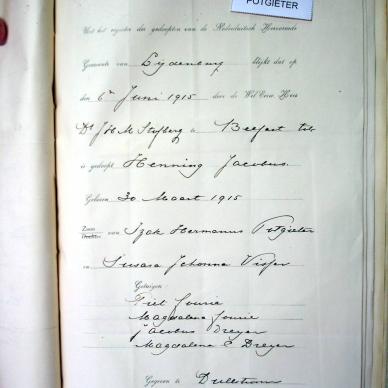 POTGIETER
Uit het register der gedoopten van de Nederduitsch Hervormde
Gemeente van Lydenburg blijkt dat op
den 6e Juni 1915 door de Wel Eerw. Heer
Ds J.H.M. Stofberg te Belfast Tvl
is gedoopt Henning Jacobus.
Geboren 30 Maart 1915
Zoon van Izak Hermanus Potgieter
Dochter
en Susara Johanna Visser
Getuigen:
Fourie
Magdalena Fourie
Jacobus Dreyer
Magdalena E Dreyer
Gegeven te Dullstroom